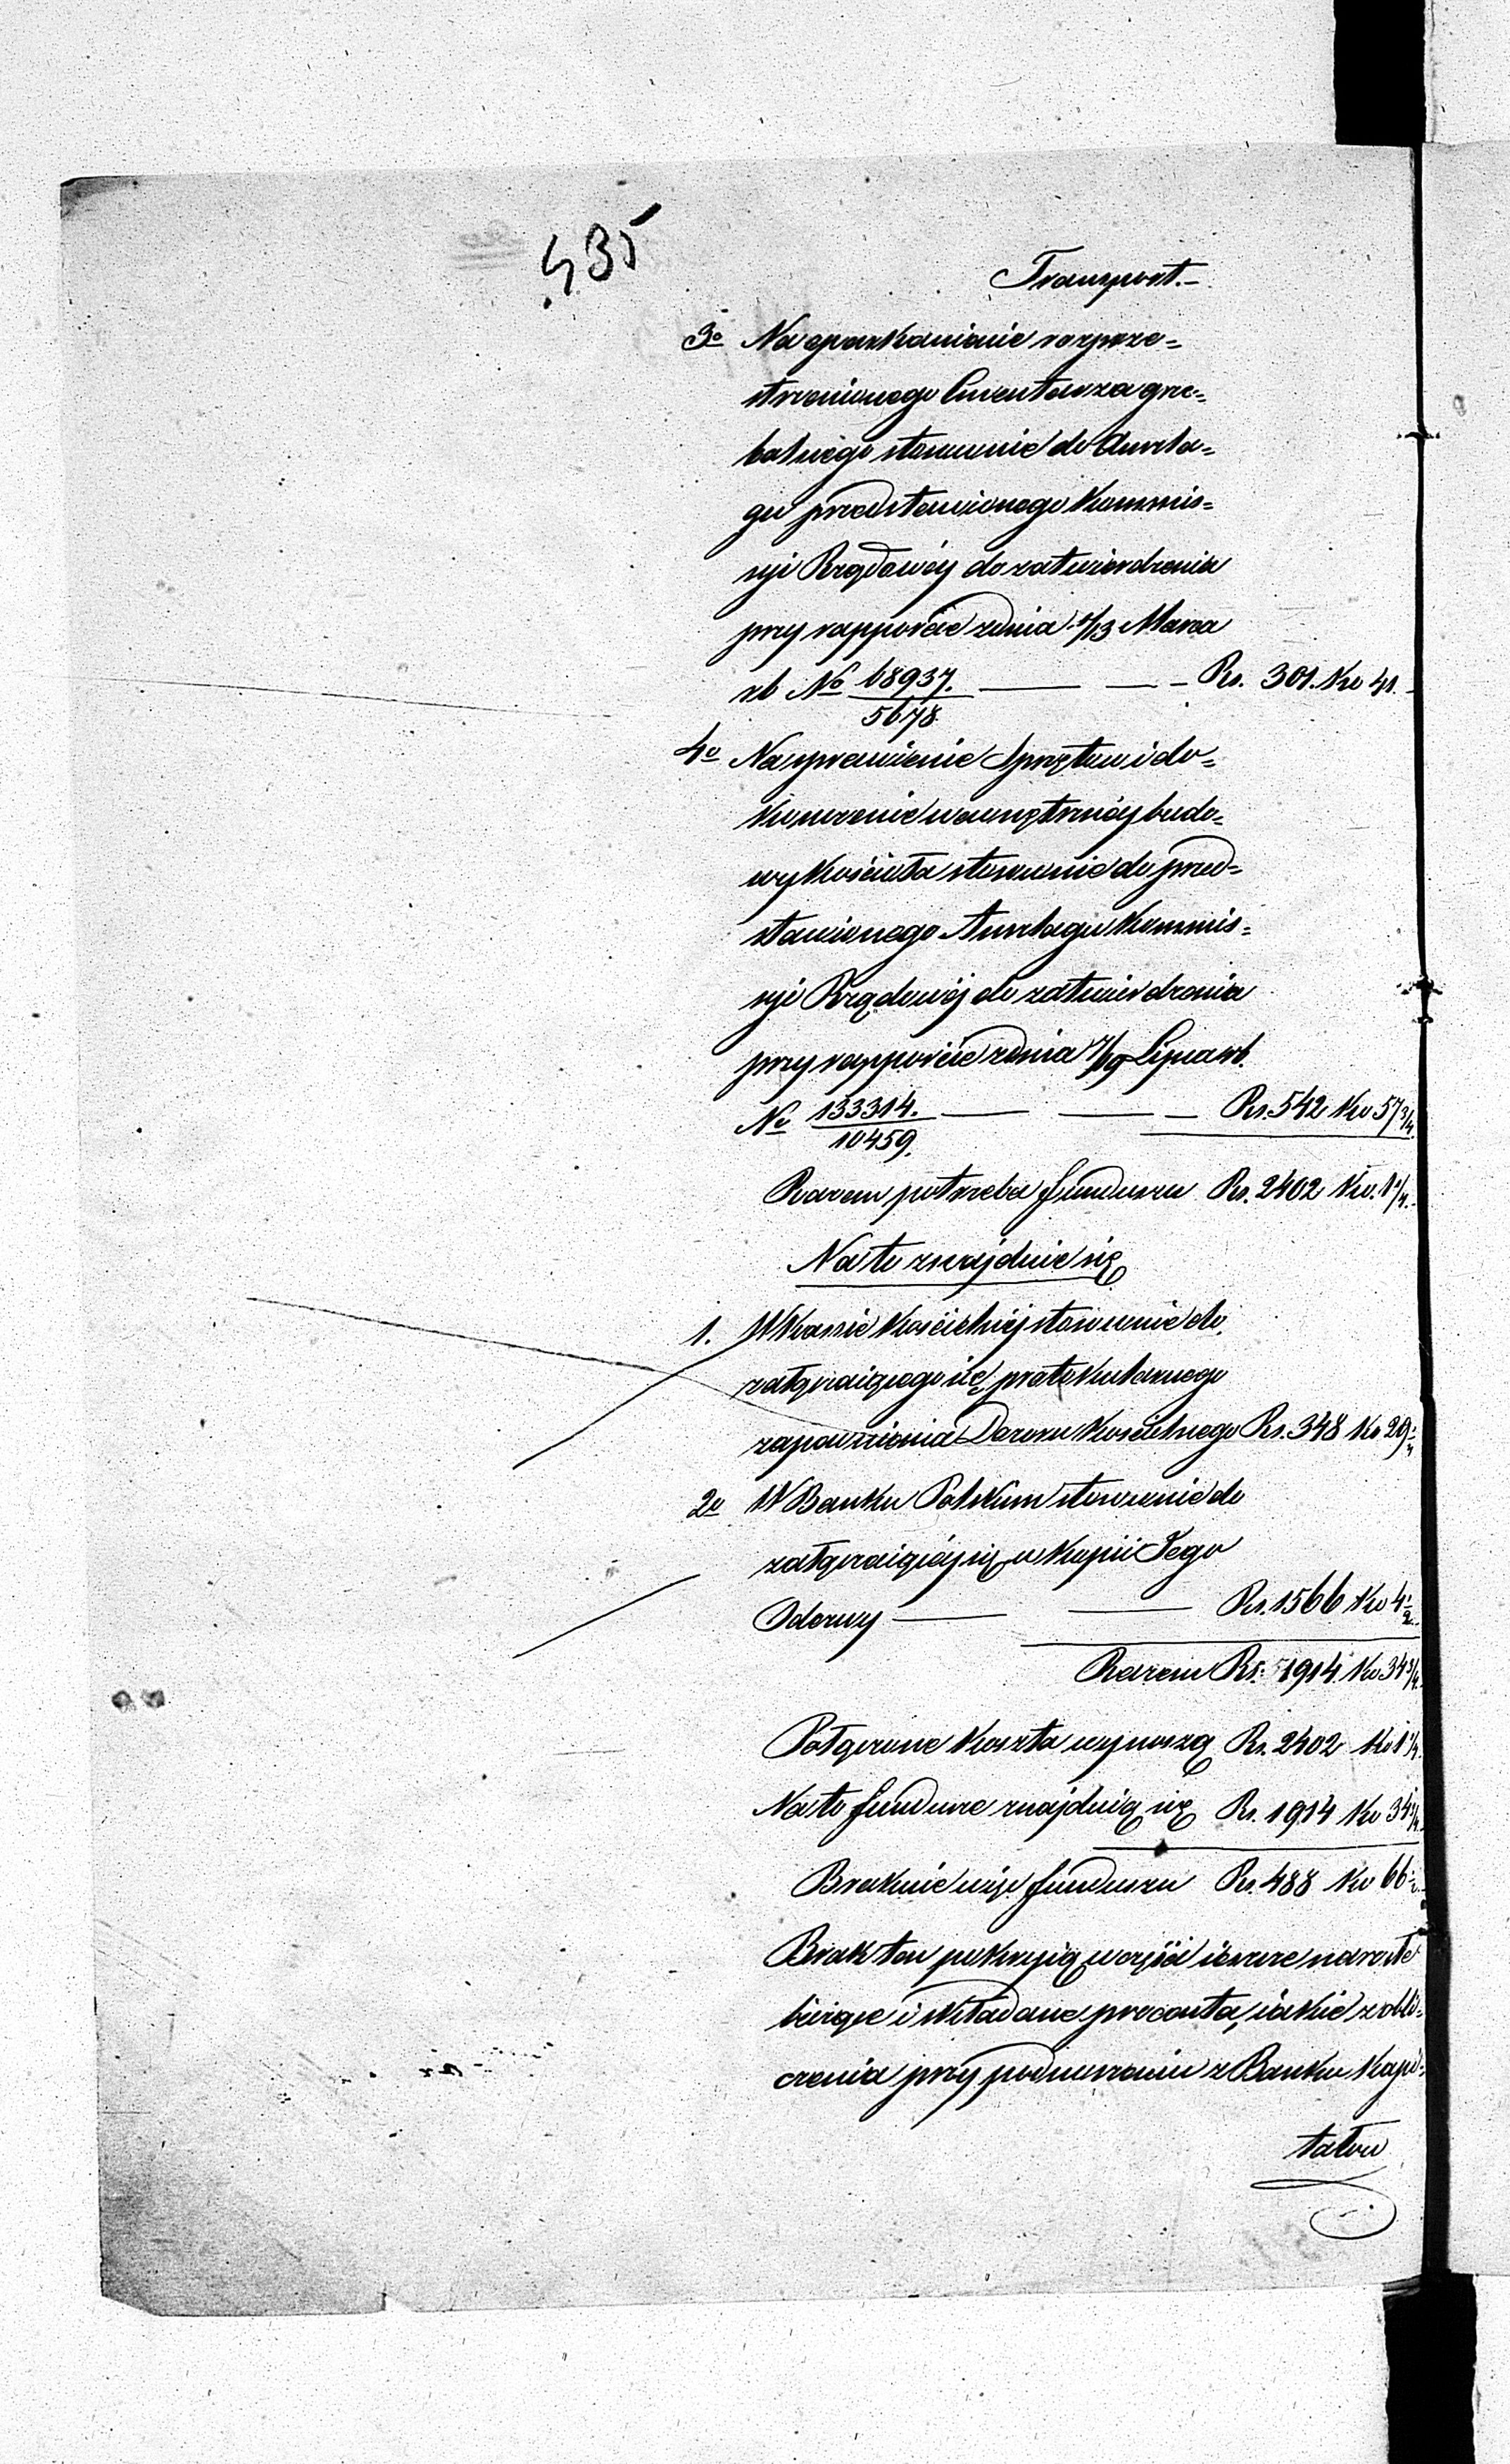 435
Transport.–
3o Na oparkanienie rozprze=
strzenionego Cmentarza grze=
balnego stosownie do Anszla=
gu przedstawionego Kommis=
syi Rządowéy do zatwierdzenia
przy rapporcie z dnia 1/13 Marca
rb No 68937./5678. — — – Rs. 301. Ko 41.–
4o Na sprawienie Sprzętów i do=
kończenie wewnętrznéy budo=
wy Kościoła stosownie do przed=
stawionego Anszlagu Kommis=
syi Rządowéj do zatwierdzenia
przy rapporcie z dnia 7/19 Lipca rb.
No 133314./10459. — — – Rs. 542 Ko 57 3/4.
Razem potrzeba funduszu Rs. 2402 Ko. 1 1/4.–
Na to znajduie się
1. W Kassie Kościelnéj stosownie do
załączaiącego się protokularnego
zapewnienia Dozoru Kościelnego Rs. 348 Ko 29 1/4
2o W Banku Polskim stosownie do
załączaiącéy się w Kopii Jego
Odezwy — — Rs. 1566 Ko 4 1/2.
Razem Rs. 1914. Ko 34 3/4.
Połączone Koszta wynoszą Rs. 2402 Ko 1 1/4.
Na to fundusze znajduią się Rs. 1914 Ko 34 3/4.
Braknie więc funduszu Rs. 488 Ko 66 1/2.
Brak ten pokryią wejść ieszcze
bieżące i składane procenta, iakie z obli=
czenia przy podnoszeniu z Banku Kapi=
tałów